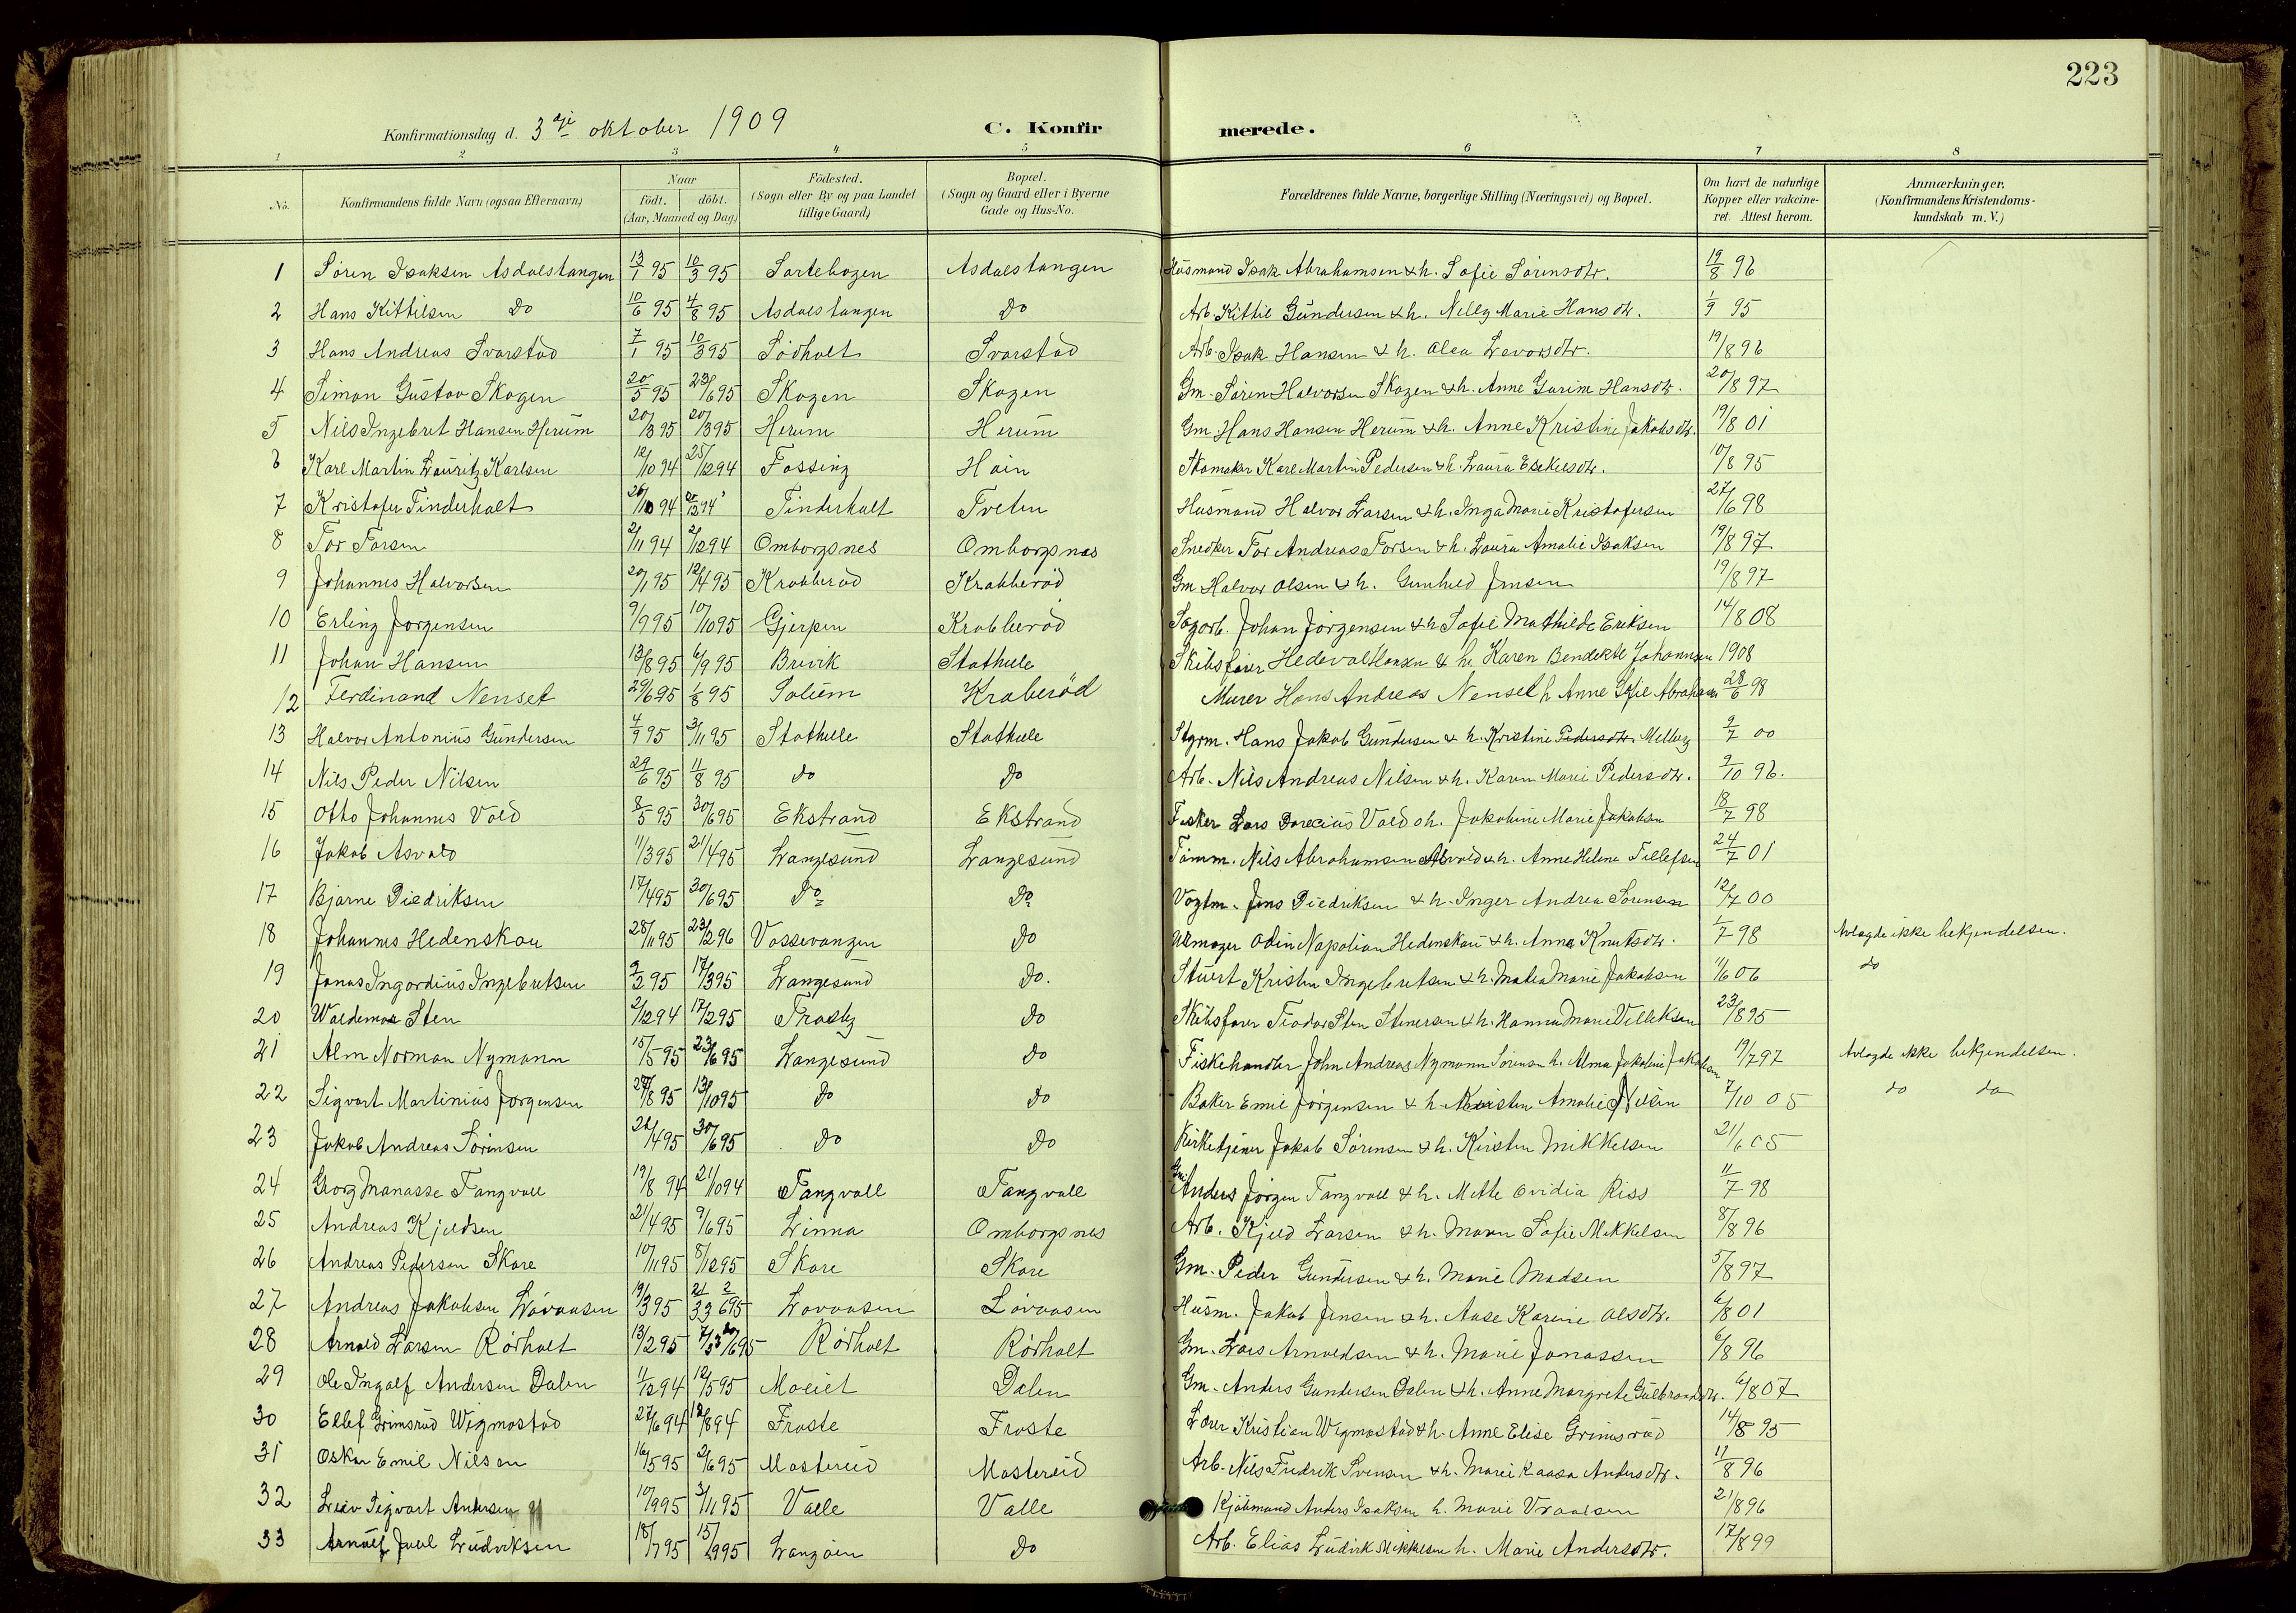 223
Konfirmationsdag d. 3dje oktober 1909 C. Konfirmerede.
1 2 3 4 5 6 7 8
No. Konfirmandens fulde Navn (ogsaa Efternavn) Naar födt. döbt. (Aar, Maaned og Dag) Födested. (Sogn eller By og paa Landet tillige Gaard) Bopæl. (Sogn og Gaard eller i Byerne Gade og Hus-No. Forældrenes fulde Navne, borgerlige Stilling (Næringsvei) og Bopæl. Om havt de naturlige Kopper eller vakcineret. Attest herom. Anmærkninger, (Konfirmandens Kristendomskundskab m. V.)
1 Sören Isaksen Asdalstangen 13/1 95 10/3 95 Sartebogen Asdalstangen Husmand Isak Abrahamsen & h. Sofie Sörensdtr. 19/8 96
2 Hans Kittilsen do 10/6 95 4/8 95 Asdalstangen do Arb. Kittil Gundersen & h. Nelly Marie Hansdtr. 1/9 95
3 Hans Andreas Svarstad 7/1 95 10/3 95 Södholt Svarstad Arb. Isak Hansen & h. Alea Levorsdtr. 19/8 96
4 Simon Gustav Skogen 20/5 95 23/6 95 Skogen Skogen Gm. Sören Halvorsen Skogen & h. Anne Gurine Hansdtr. 20/8 97
5 Nils Ingebret Hansen Herum 20/1 95 20/3 95 Herum Herum Gm. Hans Hansen Herum & h. Anne Kristine Jakobsdtr. 19/8 01
6 Karl Martin Lauritz Karlsen 12/10 94 25/12 94 Fossing Hain Skomaker Karl Martin Pedersen & h. Laura Esekielsdtr. 10/8 95
7 Kristofer Tinderholt 26/10 94 /12 94 Tinderholt Tveten Husmand Halvor Larsen & h. Inga Marie Kristofersen 27/6 98
8 Tor Torsen 2/11 94 2/12 94 Omborgsnes Omborgsnes Snedker Tor Andreas Torsen & h. Laura Amalie Isaksen 19/8 97
9 Johannes Halvorsen 20/1 95 12/4 95 Krabberöd Krabberöd Gm Halvor Olsen & h. Gunhild Jensen 19/8 97
10 Erling Jörgensen 9/9 95 10/10 95 Gjerpen Krabberöd Sagarb. Johan Jörgensen & h Sofie Mathilde Eriksen 14/8 08
11 Johan Hansen 13/8 95 6/9 95 Brevik Stathelle Skibsförer Hedeval Hansen & h. Karen Bendekte Johannsen 1908
12 Ferdinand Nenset 29/6 95 1/8 95 Solum Kraberöd Murer Hans Andreas Nenset h Anne Sofie Abraham 28/6 98
13 Halvor Antonius Gundersen 4/9 95 3/11 95 Stathelle Stathelle Styrm. Hans Jakob Gundersen & h. Kristine Pedersdtr. Melberg 9/7 00
14 Nils Peder Nilsen 29/6 95 11/8 95 do do Arb. Nils Andreas Nilsen & h. Karen Marie Pedersdtr. 9/10 96.
15 Otto Johannes Vold 8/5 95 30/6 95 Ekstrand Ekstrand Fisker Lars Dorecius Vold & h. Jakobine Marie Jakobsen 18/7 98
16 Jakob Asvald 11/3 95 21/4 95 Langesund Langesund Tömm. Nils Abrahamsen Asvald & h. Anne Helene Tellefsen 24/7 01
17 Bjarne Diedriksen 17/4 95 30/6 95 Do Do Vogtm. Jens Diedriksen & h. Inger Andrea Sörensen 12/7 00
18 Johannes Hedenskou 28/11 95 23/2 96 Vossevangen do Urmager Odin Napolion Hedenskou & h. Anna Knutsdtr. 1/7 98 Avlagde ikke bekjendelsen.
19 Jonas Ingardius Ingebretsen 9/2 95 17/3 95 Langesund do. Stuert Kristen Ingebretsen & h. Matea Marie Jakobsen 11/6 06 do
20 Waldemar Sten 2/12 94 17/2 95 Frosty do Skibsförer Teodor Sten Stenersen & h. Hanna Marie Villiksen 23/8 95
21 Alm Norman Nymann 15/5 95 23/6 95 Langesund do Fiskehandler John Andreas Nymann Sörensen h. Alma Jakobine Jakobsen 19/7 97 Avlagde ikke bekjendelsen.
22 Sigvart Martinius Jörgensen 27/8 95 13/10 95 do do Baker Emil Jörgensen & h. Kristen Amalie Nilsen 7/10 05 do do
23 Jakob Andreas Sörensen 26/4 95 30/6 95 do do Kirketjener Jakob Sörensen & h. Kirsten Mikkelsen 21/6 05
24 Georg Manasse Tangvall 19/8 94 21/10 94 Tangvall Tangvall Gm. Anders Jörgen Tangvall & h. Mette Ovidia Riss 11/7 98
25 Andreas Kjeldsen 21/4 95 9/6 95 Linna Omborgsnes Arb. Kjeld Larsen & h. Maren Sofie Mikkelsen 8/8 96
26 Andreas Pedersen Skare 10/11 95 8/12 95 Skare Skare Gm. Peder Gundersen & h. Marie Madsen 5/8 97
27 Andreas Jakobsen Lövaasen 19/3 95 21/3 2/6 95 Lovaasen Lövaasen Husm. Jakob Jensen & h. Aase Karine Olsdtr. 6/8 01
28 Arnold Larsen Rörholt 13/2 95 7/3 /6 95 Rörholt Rörholt Gm. Lars Arnoldsen & h. Marie Jonassen 6/8 96
29 Ole Ingolf Andersen Dalen 1/12 94 12/5 95 Moeiet Dalen Gm. Anders Gundersen Dalen & h. Anne Margrete Gulbrandsdtr. 6/8 07
30 Ellef Grimsrud Wigmostad 27/6 94 12/8 94 Froste Froste Lærer Kristian Wigmostad & h. Anne Elise Grimsrud 14/8 95
31 Oskar Emil Nilsen 16/5 95 2/6 95 Mostereid Mostereid Arb. Nils Fredrik Svensen & h. Marie Kaasa Andersdtr. 11/8 96
32 Leiv Sigvart Andersen 10/9 95 3/11 95 Valle Valle Kjöbmand Anders Isaksen h. Marie Vraalsen 21/8 96
33 Arnulf Juel Ludviksen 18/7 95 15/9 95 Langöen do Arb. Elias Ludvik Mikkelsen h. Marie Andersdtr. 17/8 99